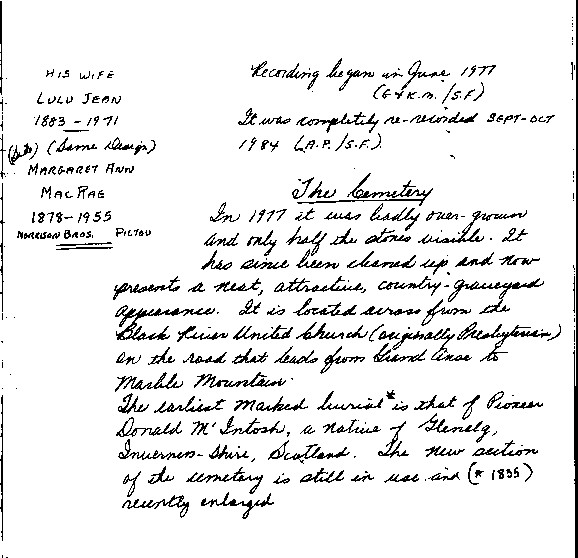 HIS WIFE
LULU JEAN
1883-1971
(Same Design)
MARGARET ANN
MACRAE
1878-1955
MORRISON BROS. PICTOU
Recording began in June 1977
(G & K.M./S.F.)
It was completely re-recorded SEPT-OCT
1984 (A.P./S.F.)
The Cemetery
In 1977 it was badly over-grown
and only half the stones visible. It
has since been cleaned up and now
presents a neat, attractive, country-graveyard
appearance. It is located across from the
Black River United Church (originally Presbyterian)
on the road that leads from Grand Anse to
Marble Mountain.
The earliest marked burial* is that of Pioneer
Donald McIntosh, a native of Glenelg,
Inverness-Shire, Scotland. The new section
of the cemetery is still in use and (* 1835)
recently enlarged